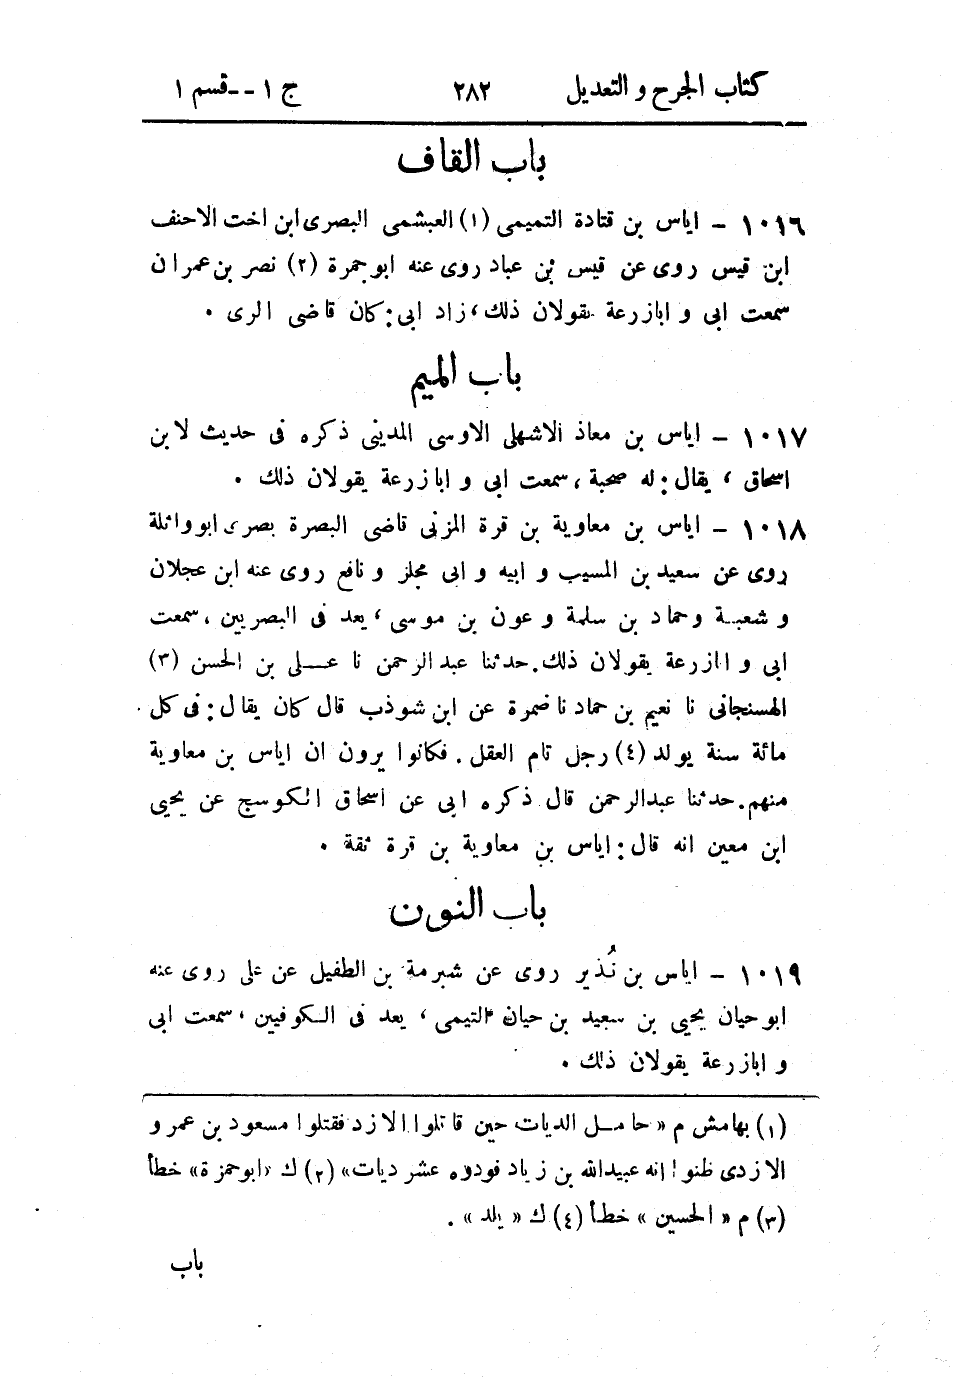 كتاب الجرح و التعديل ٢٨٢ ج ١ -- قسم ١
باب القاف
١٠١٦ - اياس بن قتادة التميمى (١) العبشمى البصرى ابن اخت الاحنف
ابن قيس روى عن قيس بن عباد روى عنه ابو جمرة (٢) نصر بن عمران
سمعت ابى و ابازرعة يقولان ذلك، زاد ابى: كان قاضى الرى .
باب الميم
١٠١٧ - اياس بن معاذ الاشهلى الاوسى المدينى ذكره فى حديث لابن
اسحاق ، يقال: له صحبة، سمعت ابى و ابازرعة يقولان ذلك .
١٠١٨ - اياس بن معاوية بن قرة المزنى قاضى البصرة بصرى ابو واثلة
روى عن سعيد بن المسيب و ابيه و ابى مجلز و نافع روى عنه ابن عجلان
و شعبة و حماد بن سلمة و عون بن موسى ، يعد فى البصريين، سمعت
ابى و ابازرعة يقولان ذلك. حدثنا عبد الرحمن نا على بن الحسن (٣)
الهسنجانى نا نعيم بن حماد نا ضمرة عن ابن شوذب قال كان يقال: فى كل
مائة سنة يولد (٤) رجل تام العقل . فكانوا يرون ان اياس بن معاوية
منهم. حدثنا عبدالرحمن قال ذكره ابى عن اسحاق الكوسج عن يحيى
ابن معين انه قال: اياس بن معاوية بن قرة ثقة .
باب النون
١٠١٩ - اياس بن نُذير روى عن شبرمة بن الطفيل عن على روى عنه
ابو حيان يحيى بن سعيد بن حيان التيمى ، يعد فى الكوفيين ، سمعت ابى
و ابازرعة يقولان ذلك .
(١) بهامش م « حامل الديات حين قاتلوا الازد فقتلوا مسعود بن عمرو
الازدى ظنوا انه عبيدالله بن زياد فودوه عشر ديات» (٢) ك «ابو حمزة» خطأ
(٣) م « الحسين » خطأ (٤) ك « يلد » .
باب